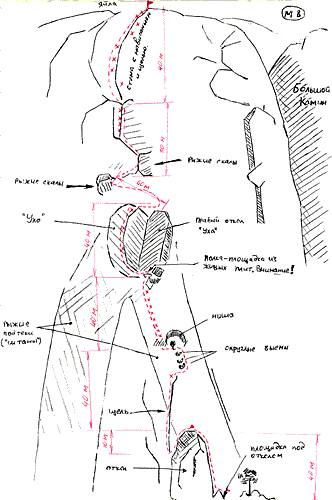 ЯЙЛА
М 8
СТЕНА С НАВЕШАННОЙ
И ЩЕЛЬЮ.
40 М
БОЛЬШОЙ
КАМИН
РЫЖИЕ СКАЛЫ
РЫЖИЕ СКАЛЫ
40 М
"УХО"
ПРАВЫЙ ОТКОЛ
"УХА"
40 М
ПОЛКА-ПЛОЩАДКА ИЗ
ЖИВЫХ ПЛИТ, ВНИМАНИЕ!
НИША
РЫЖИЕ
ПОДТЕКИ
("ШТАНЫ")
40 М
ОКРУГЛЫЕ ВЫЕМЫ
40 М
ЩЕЛЬ
10 М
ОТКОЛ
ПЛОЩАДКА ПОД
ОТКОЛОМ
40 М